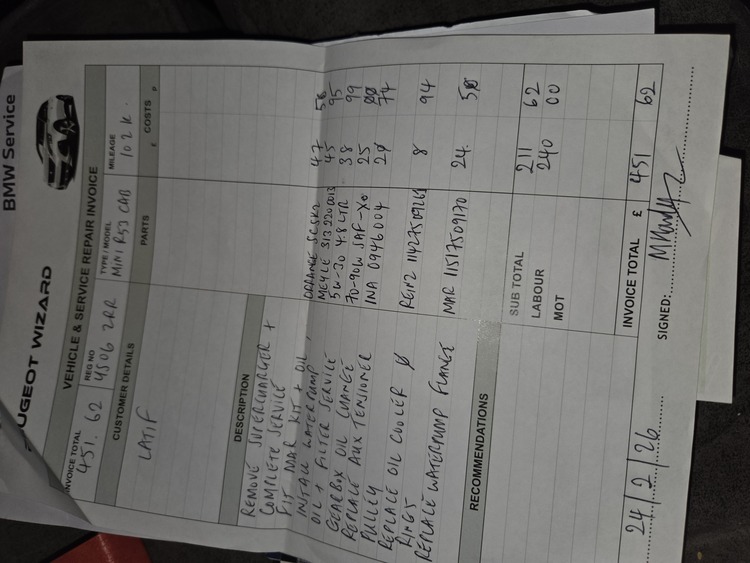 BMW Service
PEUGEOT WIZARD
VEHICLE & SERVICE REPAIR INVOICE
INVOICE TOTAL
451. 62
REG NO
TYPE / MODEL
MINI R53 CAB
MILEAGE
102K.
CUSTOMER DETAILS
PARTS
£ COSTS P
LATIF
DESCRIPTION
REMOVE SUPERCHARGER +
COMPLETE SERVICE
FIT MAR KIT + OIL
INSTALL WATERPUMP,
OIL + FILTER SERVICE
GEARBOX OIL CHANGE
REPLACE AUX TENSIONER
PULLY
REPLACE OIL COOLER
RINGS
REPLACE WATERPUMP FLANGE
47
MEYLE 313 220 0013 45 95
5W-30 4.8 LTR 38 99
70-90W 25
INA 0946004 74
REINZ 8 94
MAR 11517509170 24.
RECOMMENDATIONS
SUB TOTAL 211 62
LABOUR 240 00
MOT
INVOICE TOTAL £ 451 62
24/2/26
SIGNED: